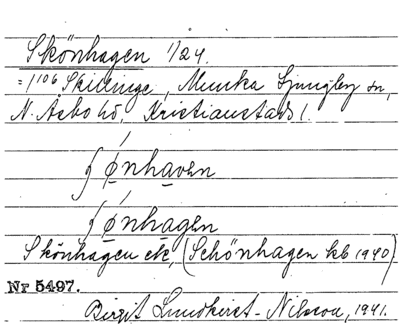 Skönhagen 1/24.
= 1/106 Skillinge, Munka Ljungby sn,
N. Åsbo hd, Kristianstads l.
ʃǿnhaven
ʃǿnhagen
Skönhagen etc, (Schönhagen kb 1940)
Nr 5497.
Birgit Lundkvist-Nilsson, 1941.